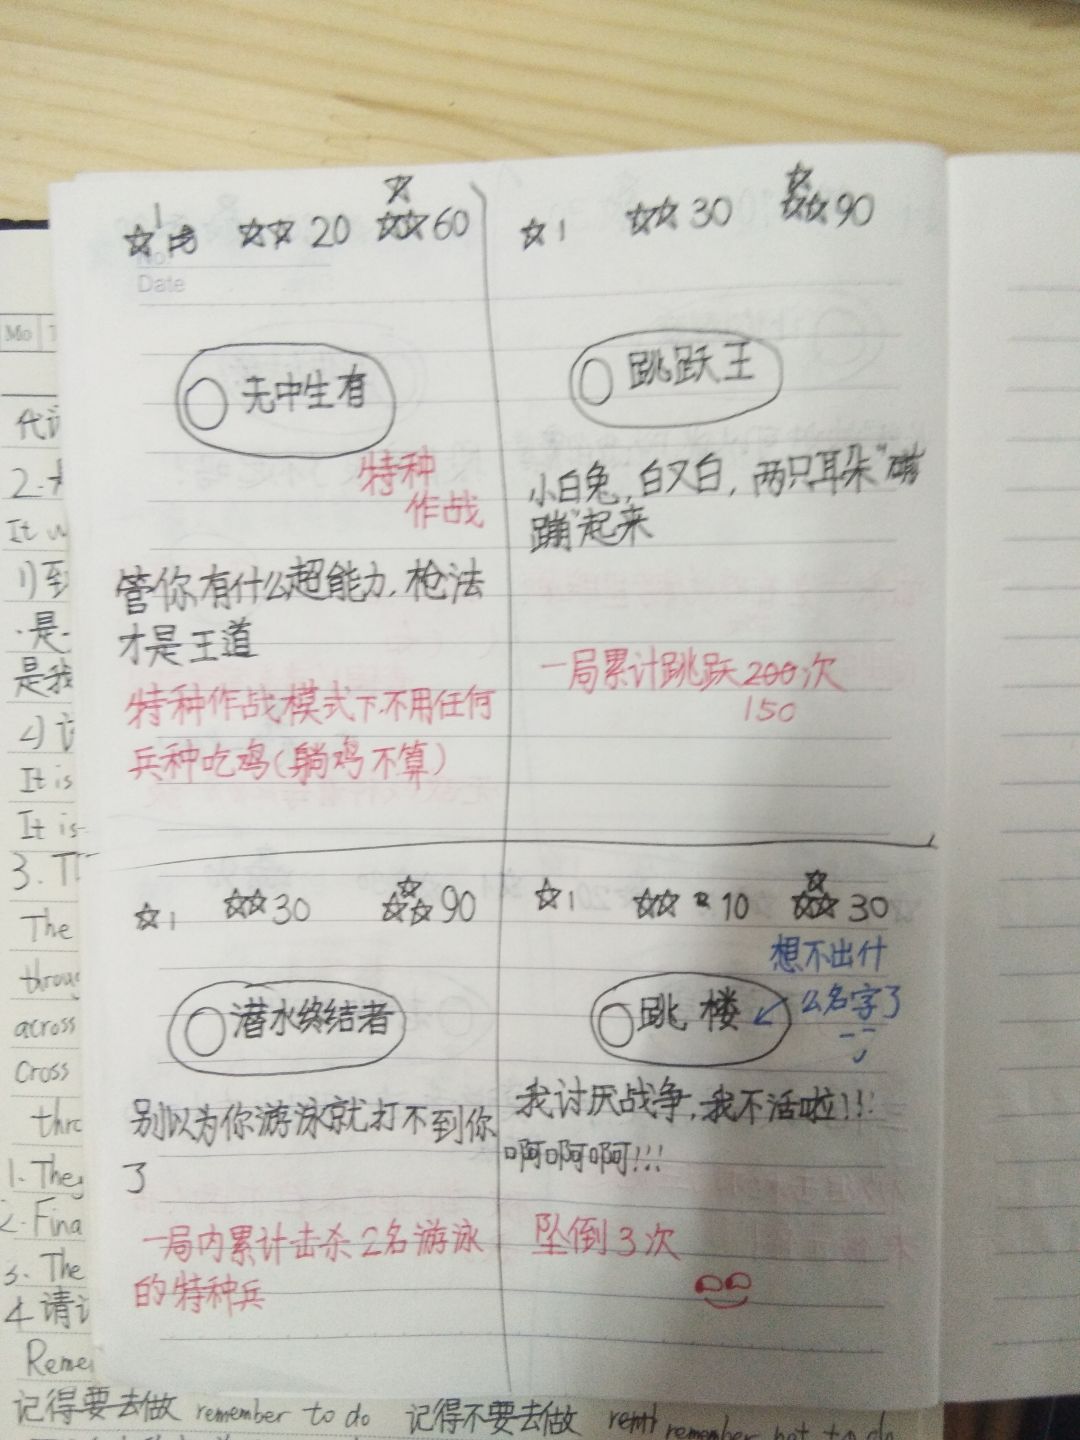 ☆1 ☆☆20 ☆☆☆60
No.
Date
无中生有
特种
作战
管你有什么超能力,枪法
才是王道
特种作战模式下,不用任何
兵种吃鸡(躺鸡不算)
☆1 ☆☆30 ☆☆☆90
跳跃王
小白兔,白又白,两只耳朵"
蹦"起来
一局累计跳跃200次
150
☆1 ☆☆30 ☆☆☆90
潜水终结者
别以为你游泳就打不到你
了
一局内累计击杀2名游泳
的特种兵
☆1 ☆☆10 ☆☆☆30
想不出什
么名字了
跳楼
我讨厌战争,我不活啦!!!
啊啊啊!!!
坠倒3次
Mo
2.
It
1)到
是
是我
2)
It is
It is
3. T
The
throu
across
Cross
thro
1. They
2. Fina
3. The
4 请
Reme
记得要去做 remember to do 记得不要去做 remember not to do